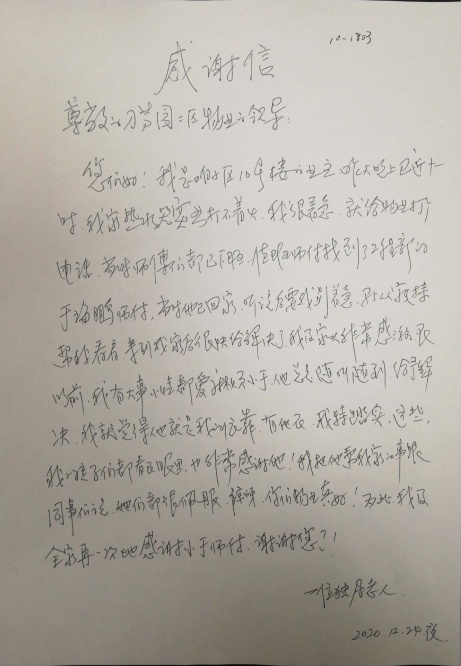 10-1803
感谢信
尊敬的芳园二区物业的领导:
您们好!我是咱小区10号楼的业主,昨天晚上已近十
时,我家热水器突然打不着火,我很着急,就给物业打
电话,当时师傅们都已下班,值班师付找到了工程部的
于海鹏师付,当时他已回家,听说后要我别着急,
帮我看看,来到我家后很快给解决了,我及家人非常感激,我
以前,我有大事小事都爱找小于,他总是随叫随到,给予解
决,我就觉得他就是我的依靠,有他在,我特踏实,这些,
我的孩子们都看在眼里,也非常感谢他!我把他帮我家的事跟
同事们说,她们都很佩服,你们物业真好!为此,我及
全家再一次地感谢小于师付,谢谢您了!
一位独居老人
2020.12.24夜